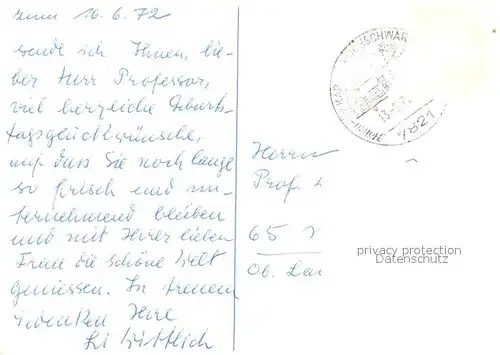 zum 16.6.72
sende ich Ihnen, lie-
ber Herr Professor,
viel herzliche Geburts-
tagsglückwünsche,
auf dass Sie noch lange
so frisch und un-
ternehmend bleiben
und mit Ihrer lieben
Frau die schöne Welt
geniessen. In treuem
Gedenken Ihre
Wittlich
7821
Herrn
Prof.
65
Ob.
privacy protection
Datenschutz